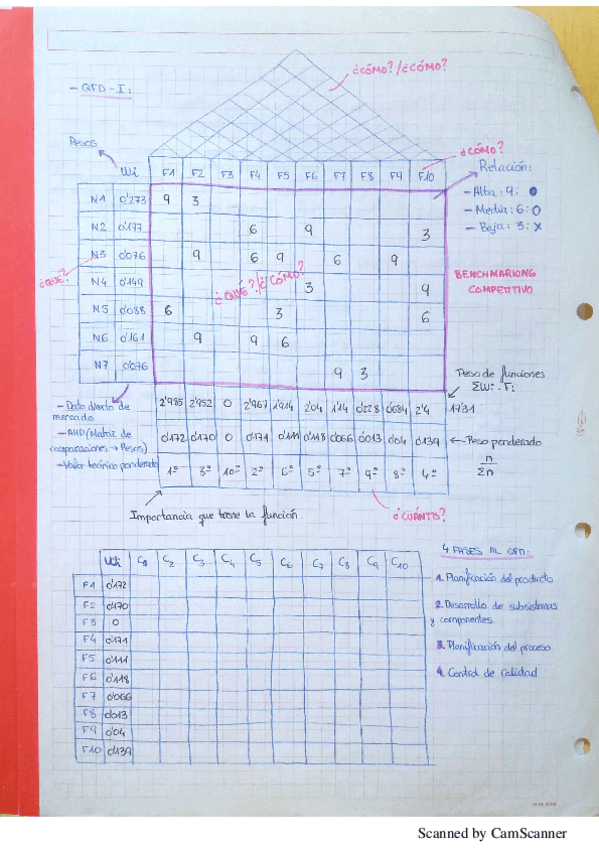 - QFD - I:
¿CÓMO? / ¿CÓMO?
¿CÓMO?
Pesos
Wi F1 F2 F3 F4 F5 F6 F7 F8 F9 F10
Relación:
- Alta: 9: ●
- Media: 6: O
- Baja: 3: X
N1 0'273 9 3
N2 0'177 6 9 3
N3 0'076 9 6 9 6 9
¿QUÉ?
¿QUÉ?/¿CÓMO?
N4 0'149 3 9
BENCHMARKING
COMPETITIVO
N5 0'088 6 3 6
N6 0'161 9 9 6
N7 0'076 9 3
Peso de funciones
ΣWi · Fi
- Dato directo de
mercado
2'985 2'952 0 2'967 1'914 2'04 1'14 0'228 0'684 2'4 17'31
- AHD (Matriz de
comparaciones → Pesos)
0'172 0'170 0 0'171 0'111 0'118 0'066 0'013 0'04 0'139 ← Peso ponderado
n
Σn
- Valor teórico ponderado
1º 3º 10º 2º 6º 5º 7º 9º 8º 4º
Importancia que tiene la función.
¿CUÁNTO?
Wi C1 C2 C3 C4 C5 C6 C7 C8 C9 C10
F1 0'172
F2 0'170
F3 0
F4 0'171
F5 0'111
F6 0'118
F7 0'066
F8 0'013
F9 0'04
F10 0'139
4 FASES AL QFD:
1. Planificación del producto
2. Desarrollo de subsistemas
y componentes.
3. Planificación del proceso
4. Control de calidad
Scanned by CamScanner